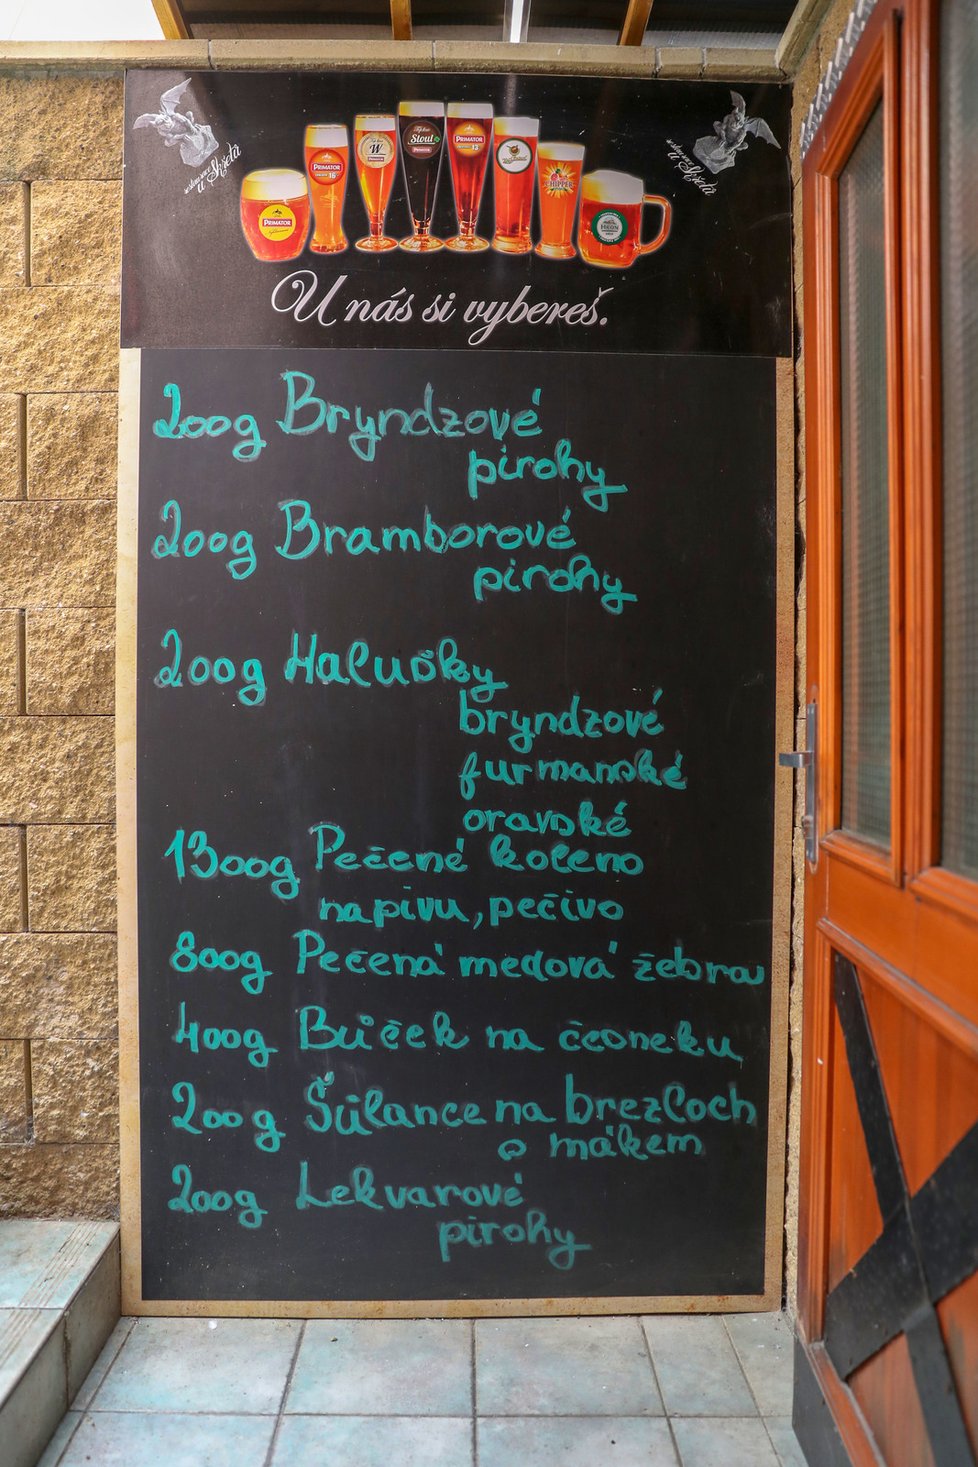 U nás si vybereš.
PRIMATOR
PRIMATOR
16
W
Stout
PRIMATOR
PRIMATOR
13
CHIPPER
200g Bryndzové
pirohy
200g Bramborové
pirohy
200g Halušky
bryndzové
furmanské
oravské
1300g Pečené koleno
na pivu, pečivo
800g Pečená medová žebra
400g Bůček na česneku
200g Šúlance na brezloch
o mákem
200g Lekvarové
pirohy